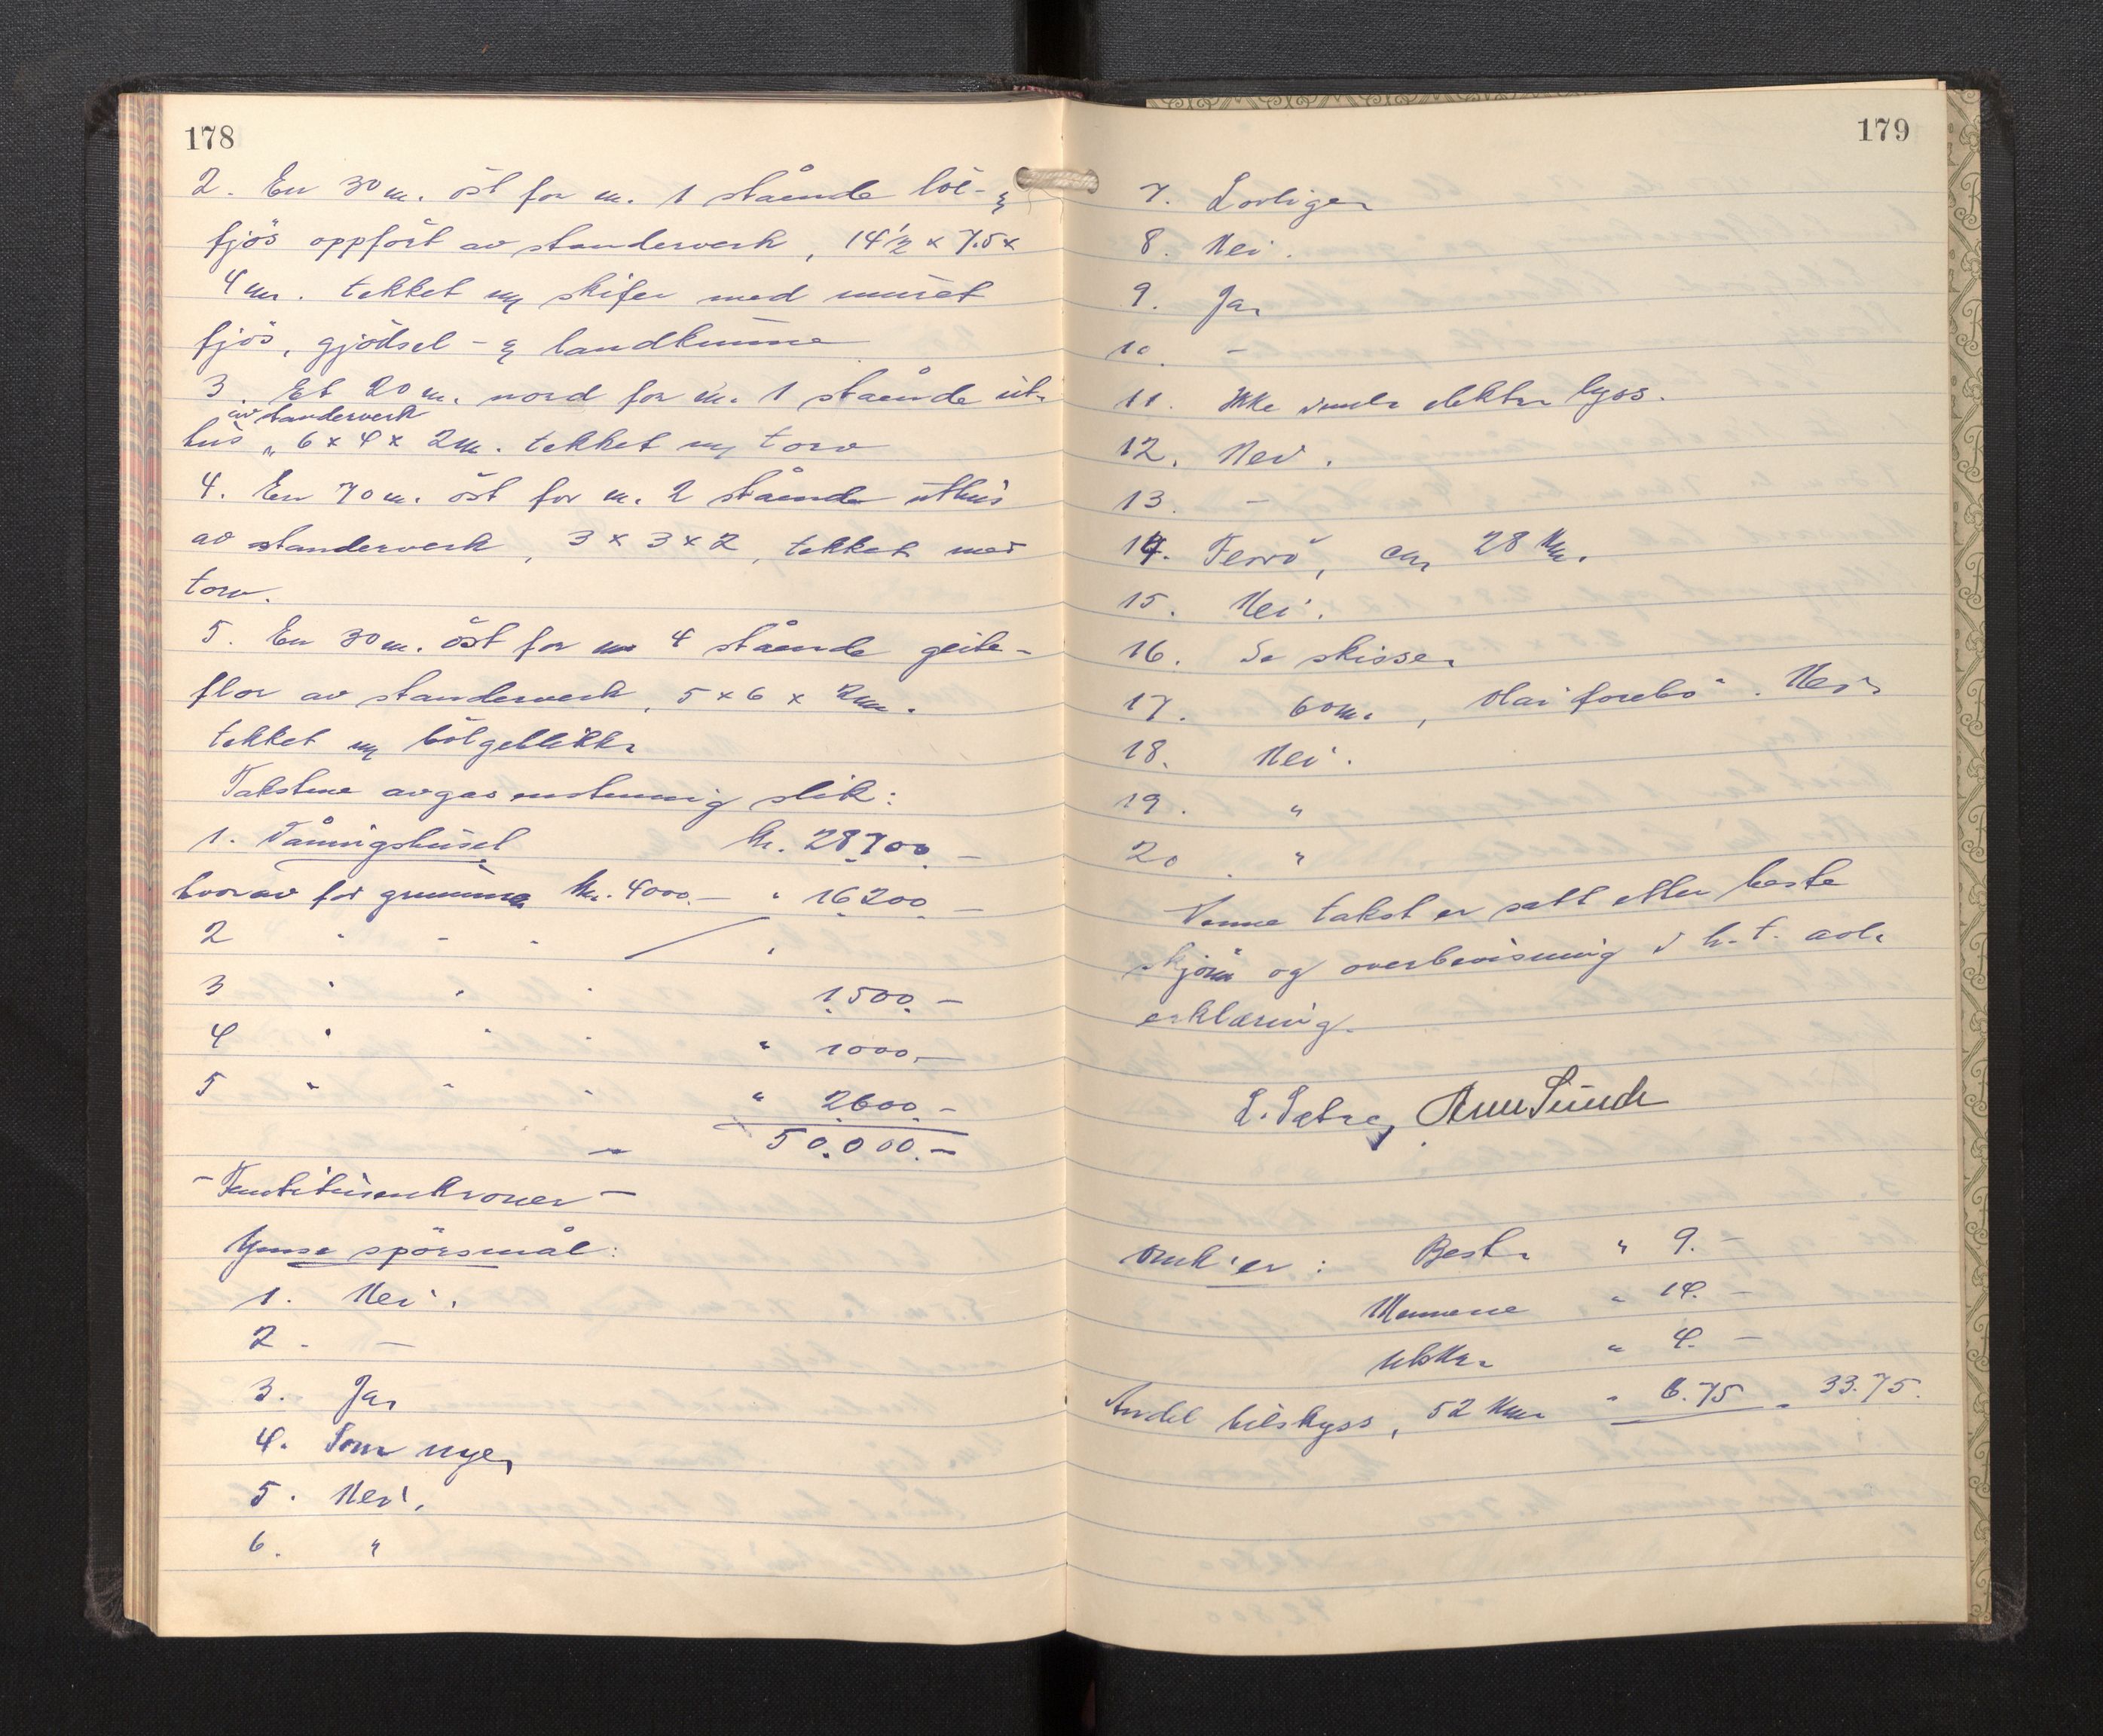 178
2. En 30 m. öst for m. 1 stående löe- &
fjös oppfört av standerverk, 14½ x 7.5 x
4 m. tekket m/ skifer med muret
fjös, gjödsel- & landkumme
3. Et 20 m. nord for m. 1 stående ut-
av standerverk
hus „ 6 x 4 x 2 m. tekket m/ torv
4. En 70 m. öst for m. 2 stående uthus
av standerverk, 3 x 3 x 2, tekket med
torv.
5. En 30 m. öst for m 4 stående geite-
flor av standerverk, 5 x 6 x 2 m.
tekket m/ bölgeblikk.
Takstene avgas enstemmig slik:
1. Våningshuset kr. 28700.-
hvorav for grunnmur kr. 4000.- " 16200.-
2 " " " "
3 " " " 1500.-
4 " " " " 1000.-
5 " " " " 2600.-
50.000.-
- Femtitusenkroner -
Ymse spörsmål:
1. Nei.
2. -
3. Ja,
4. Som nye,
5. Nei.
6. "
179
7. Lovlige,
8. Nei.
9. Ja,
10. -
11. Ikke elektr. lyss.
12. Nei.
13. -
14. ca, 28 km.
15. Nei.
16. Se skisse,
17. 60 m., Nei,
18. Nei.
19. "
20. "
Denne takst er satt etter beste
skjönn og overbevisning i h.t. avl.
erklæring.
L. Sætre, Arne Sunde
Omk.er: Best. " 9.-
Mennene " 14.-
Utskr. " 4.-
Andel bilskyss, 52 km " 6.75 " 33.75.